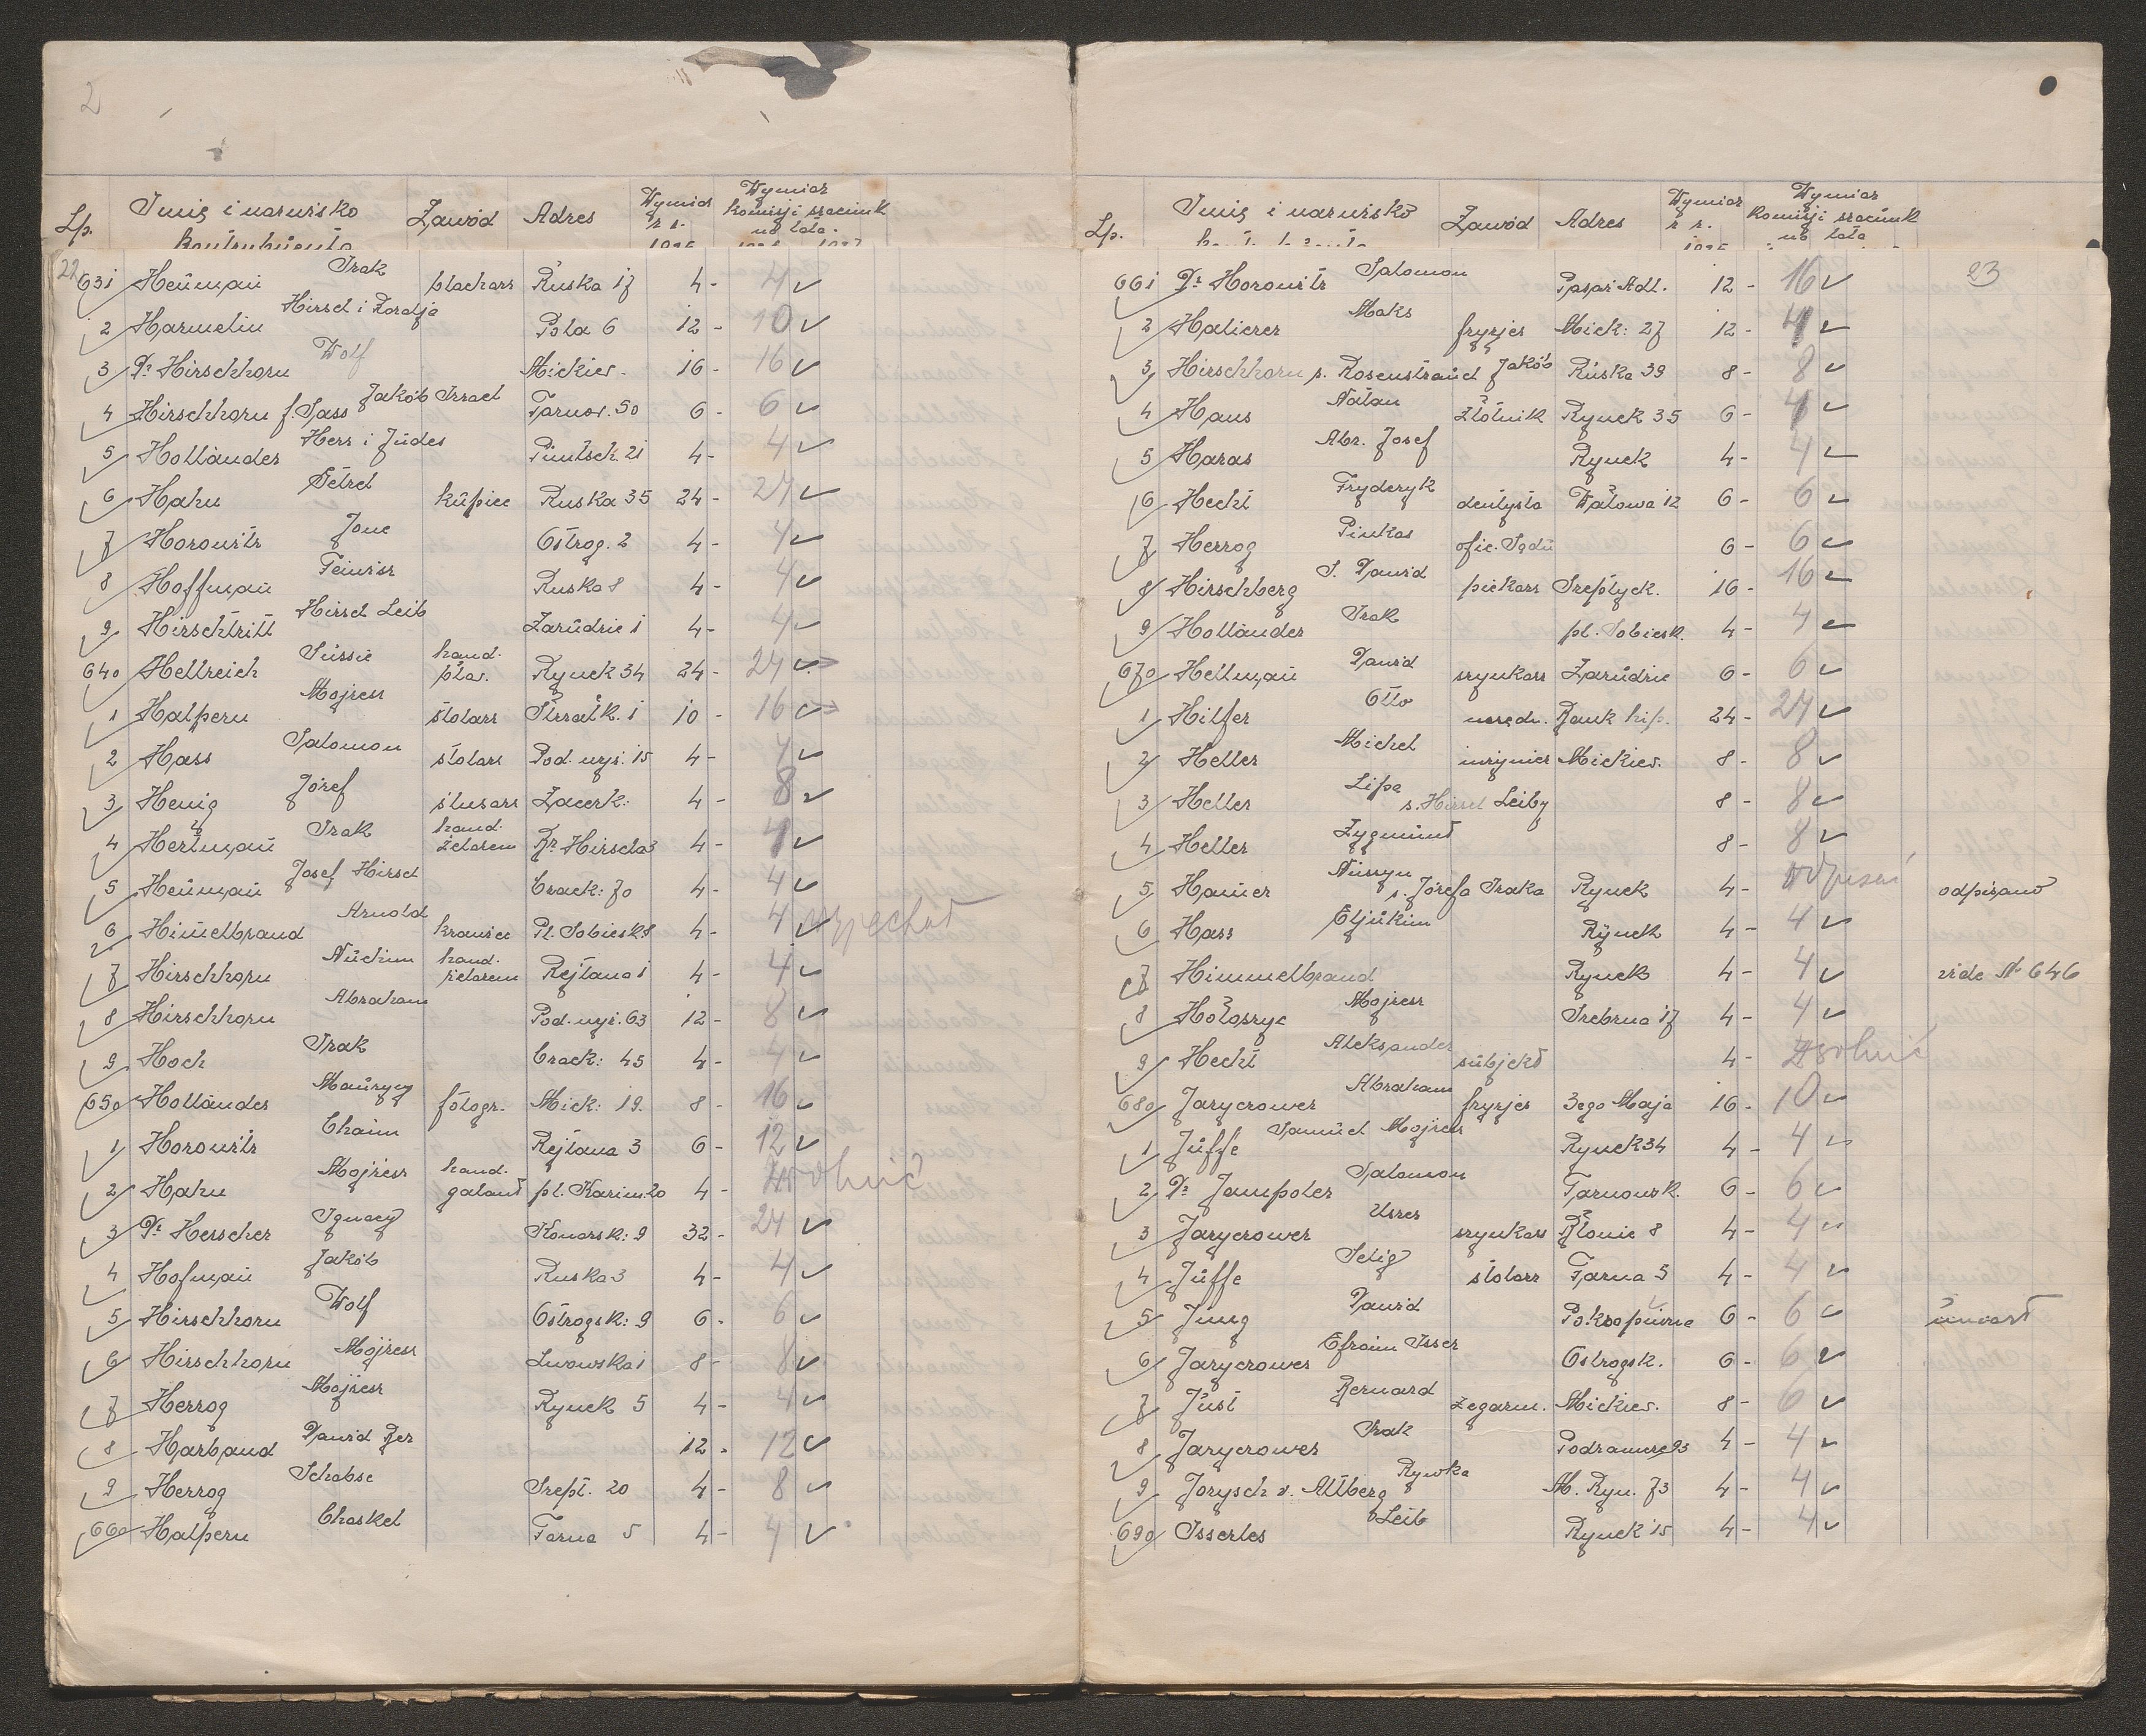 2
Lp. Imię i nazwisko Zawód Adres Wymiar z r. Wymiar komisji szacunk na lata
22
631 Heuman Izak blacharz Ruska 17 4- 4
2 Harmelin Hirsch i Zoratja Pola 6 12- 10
3 Dr Hirschhorn Wolf Mickiew. 16- 16
4 Hirschhorn f. Sass Jakób Israel Tarnow. 50 6- 6
5 Holländer Hersz i Judes Puntsch. 21 4- 4
6 Hahn Getzel kupiec Ruska 35 24- 24
7 Horowitz Jone Ostrog. 2 4- 4
8 Hoffman Feiwisz Ruska 8 4- 4
9 Hirschtritt Hirsch Leib Zarudzie 1 4- 4
640 Hellreich Süssie hand. bław. Rynek 34 24- 24
1 Halpern Mojżesz stolarz Strzałk. 1 10- 16
2 Hass Salomon stolarz Pod. wyż. 15 4- 4
3 Henig Józef ślusarz Zacerk. 4- 8
4 Hertman Izak hand. żelazem Dr Hirscha 3 4- 4
5 Heuman Josef Hirsch Czack: 70 4- 4
6 Himelbrand Arnold krawiec Pl. Sobiesk. 8 4- 4 wyjechał
7 Hirschhorn Nuchim hand. żelazem Rejtana 1 4- 4
8 Hirschhorn Abraham Pod. wyż. 63 12- 8
9 Hoch Izak Czack: 45 4- 4
650 Holländer Maurycy fotogr. Mick: 19. 8- 16
1 Horowitz Chaim Rejtana 3 6- 12
2 Hahn Mojżesz hand. galant pl. Kazim. 20 4- zwolnić
3 Dr Herscher Ignacy Konarsk: 9 32- 24
4 Hofman Jakób Ruska 3 4- 4
5 Hirschhorn Wolf Ostrogsk: 9 6- 6
6 Hirschhorn Mojżesz Lwowska 1 8- 8
7 Herzog Mojżesz Rynek 5 4- 4
8 Harband Dawid Ber 12- 12
9 Herzog Schabse Szept. 20 4- 8
660 Halpern Chaskel Farna 5 4- 4
Lp. Imię i nazwisko Zawód Adres Wymiar z r. Wymiar komisji szacunk na lata
23
661 Dr Horowitz Salomon Pasaż Adl. 12- 16
2 Haliczer Maks fryzjer Mick: 27 12- 4
3 Hirschhorn r. Rosenstrauch Jakób Ruska 39 8- 8
4 Haus Natan złotnik Rynek 35 6- 4
5 Haras Abr. Josef Rynek 4- 4
6 Hecht Fryderyk dentysta Wałowa 12 6- 6
7 Herzog Pinkas ofic. Sądu 6- 6
8 Hirschberg S. Dawid piekarz Szeptyck. 16- 16
9 Holländer Izak pl. Sobiesk. 4- 4
670 Hellman Dawid szynkarz Zarudzie 6- 6
1 Hilfer Otto urzędn. Bank hip. 24- 24
2 Heller Michel inżynier Mickiew. 8- 8
3 Heller Lipa s. Hirsch Leiby 8- 8
4 Heller Zygmunt 8- 8
5 Hamer Nussyn s. Józefa Izaka Rynek 4- odpisać odpisano
6 Hass Eljukim Rynek 4- 4
7 Himmelbrand Rynek 4- 4 vide № 646
8 Hołoszyc Mojżesz Srebrna 17 4- 4
9 Hecht Aleksander subjekt 4- zwolnić
680 Jaryczower Abraham fryzjer 3ego Maja 16- 10
1 Juffe Samuel Mojżesz Rynek 34 4- 4
2 Dr Jampoler Salomon Tarnowsk. 6- 6
3 Jaryczower Uszer szynkarz Błonie 8 4- 4
4 Juffe Selig stolarz Farna 5 4- 4
5 Jung Dawid Pokropiwna 6- 6 umarł
6 Jaryczower Efroim Isser Ostrogsk. 6- 6
7 Just Bernard zegarm. Mickiew. 8- 6
8 Jaryczower Izak Podzamcze 93 4- 4
9 Jorysch v. Altberg Rywka M. Ryn. 73 4- 4
690 Isserles Leib Rynek 15 4- 4